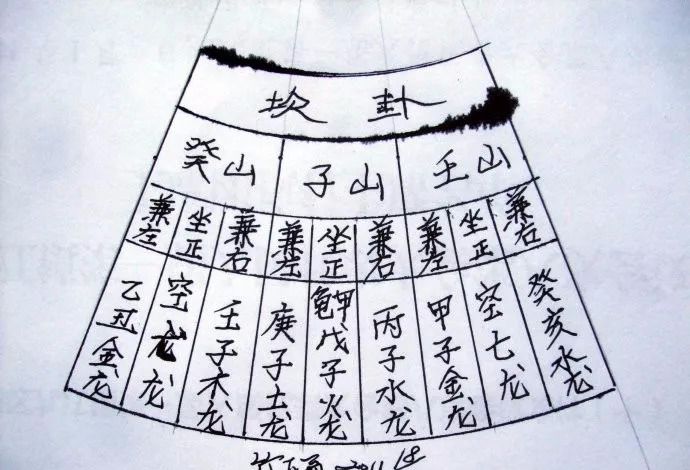 坎 卦
癸山 子山 壬山
兼左 坐正 兼右 兼左 坐正 兼右 兼左 坐正 兼右
乙丑金龙 空龙 壬子木龙 庚子土龙 龟甲戊子火龙 丙子水龙 甲子金龙 空亡龙 癸亥水龙
2011